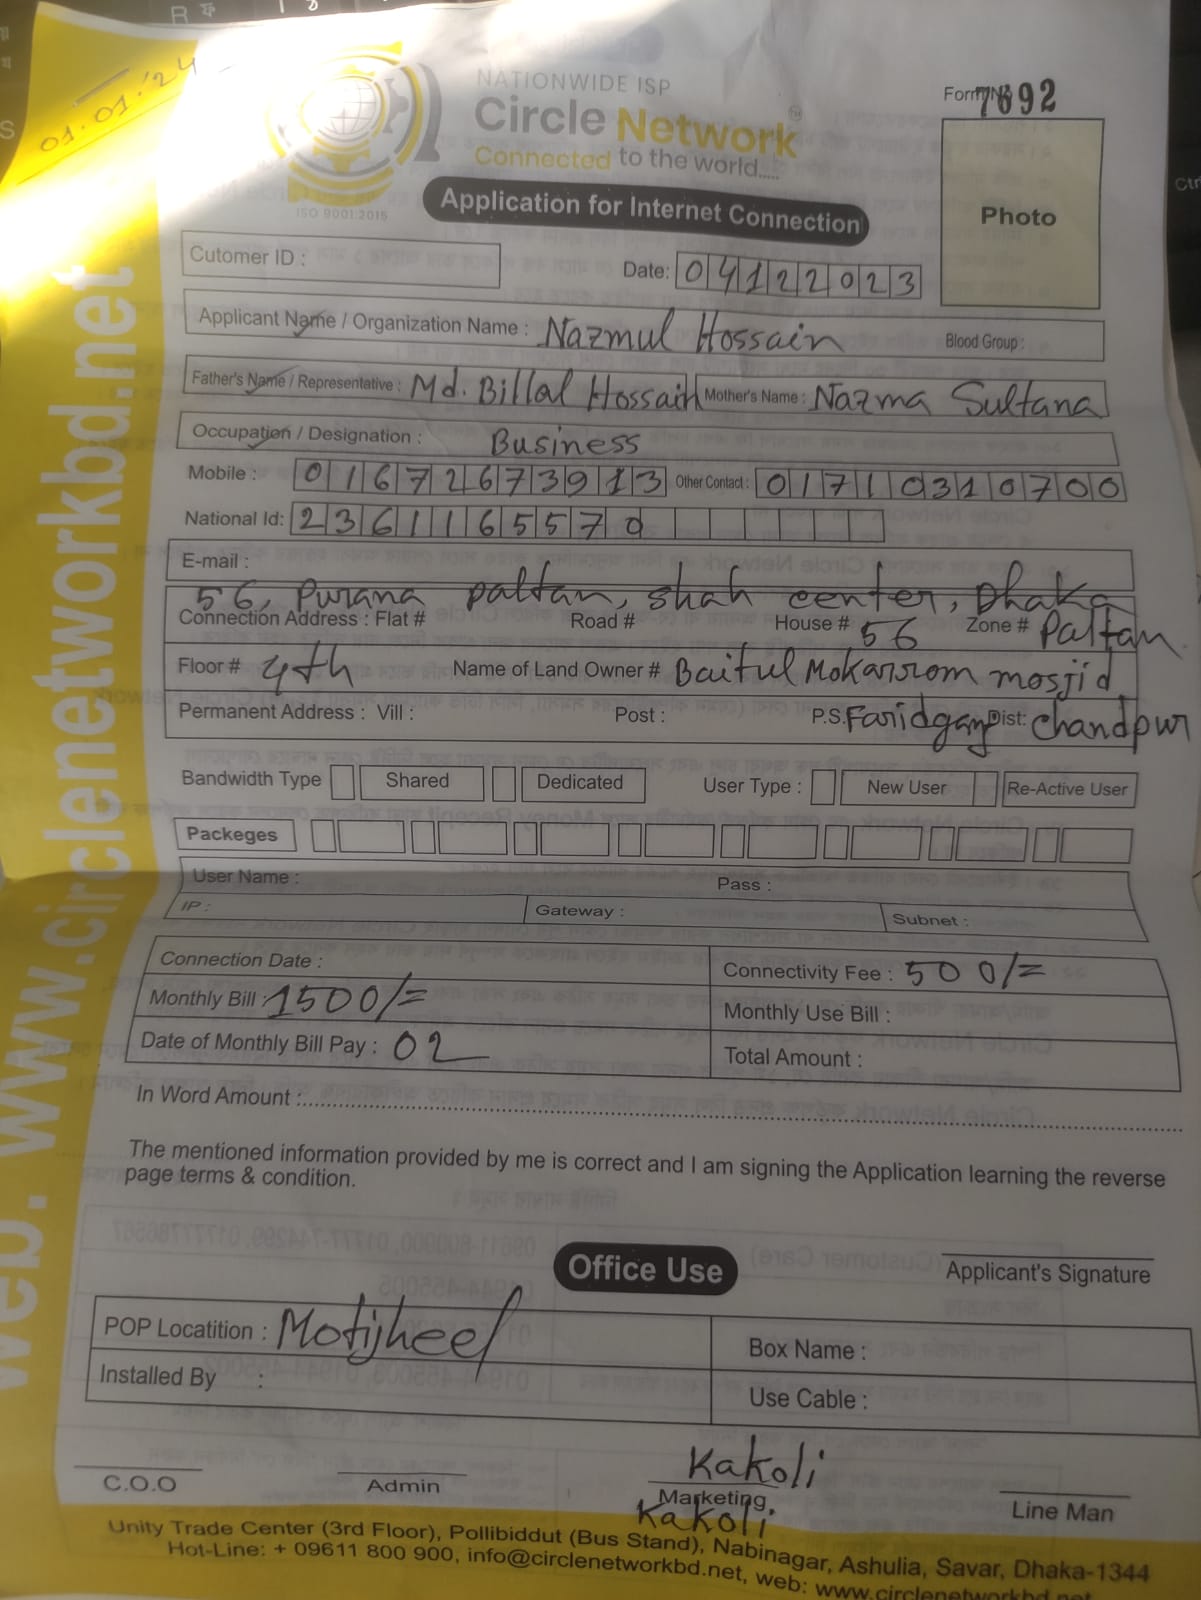 01.01.'24
NATIONWIDE ISP
Circle Network
Connected to the world.....
ISO 9001:2015
Form No 7692
Photo
Application for Internet Connection
Cutomer ID :
Date: 04122023
Applicant Name / Organization Name : Nazmul Hossain Blood Group :
Father's Name / Representative : Md. Billal Hossain Mother's Name : Nazma Sultana
Occupation / Designation : Business
Mobile : 01672673913 Other Contact : 01710310700
National Id: 2361165570
E-mail :
56, Purana paltan, shah center, Dhaka
Connection Address : Flat # Road # House # 56 Zone # Paltan
Floor # 4th Name of Land Owner # Baitul Mokarrom mosjid
Permanent Address : Vill : Post : P.S. Faridganj Dist: Chandpur
Bandwidth Type Shared Dedicated User Type : New User Re-Active User
Packeges
User Name : Pass :
IP : Gateway : Subnet :
Connection Date : Connectivity Fee : 500/=
Monthly Bill : 1500/= Monthly Use Bill :
Date of Monthly Bill Pay : 02 Total Amount :
In Word Amount :
The mentioned information provided by me is correct and I am signing the Application learning the reverse
page terms & condition.
Applicant's Signature
Office Use
POP Locatition : Motijheel Box Name :
Installed By : Use Cable :
Kakoli
C.O.O Admin Marketing Line Man
Kakoli
Unity Trade Center (3rd Floor), Pollibiddut (Bus Stand), Nabinagar, Ashulia, Savar, Dhaka-1344
Hot-Line: + 09611 800 900, info@circlenetworkbd.net, web: www.circlenetworkbd.net
web. www.circlenetworkbd.net